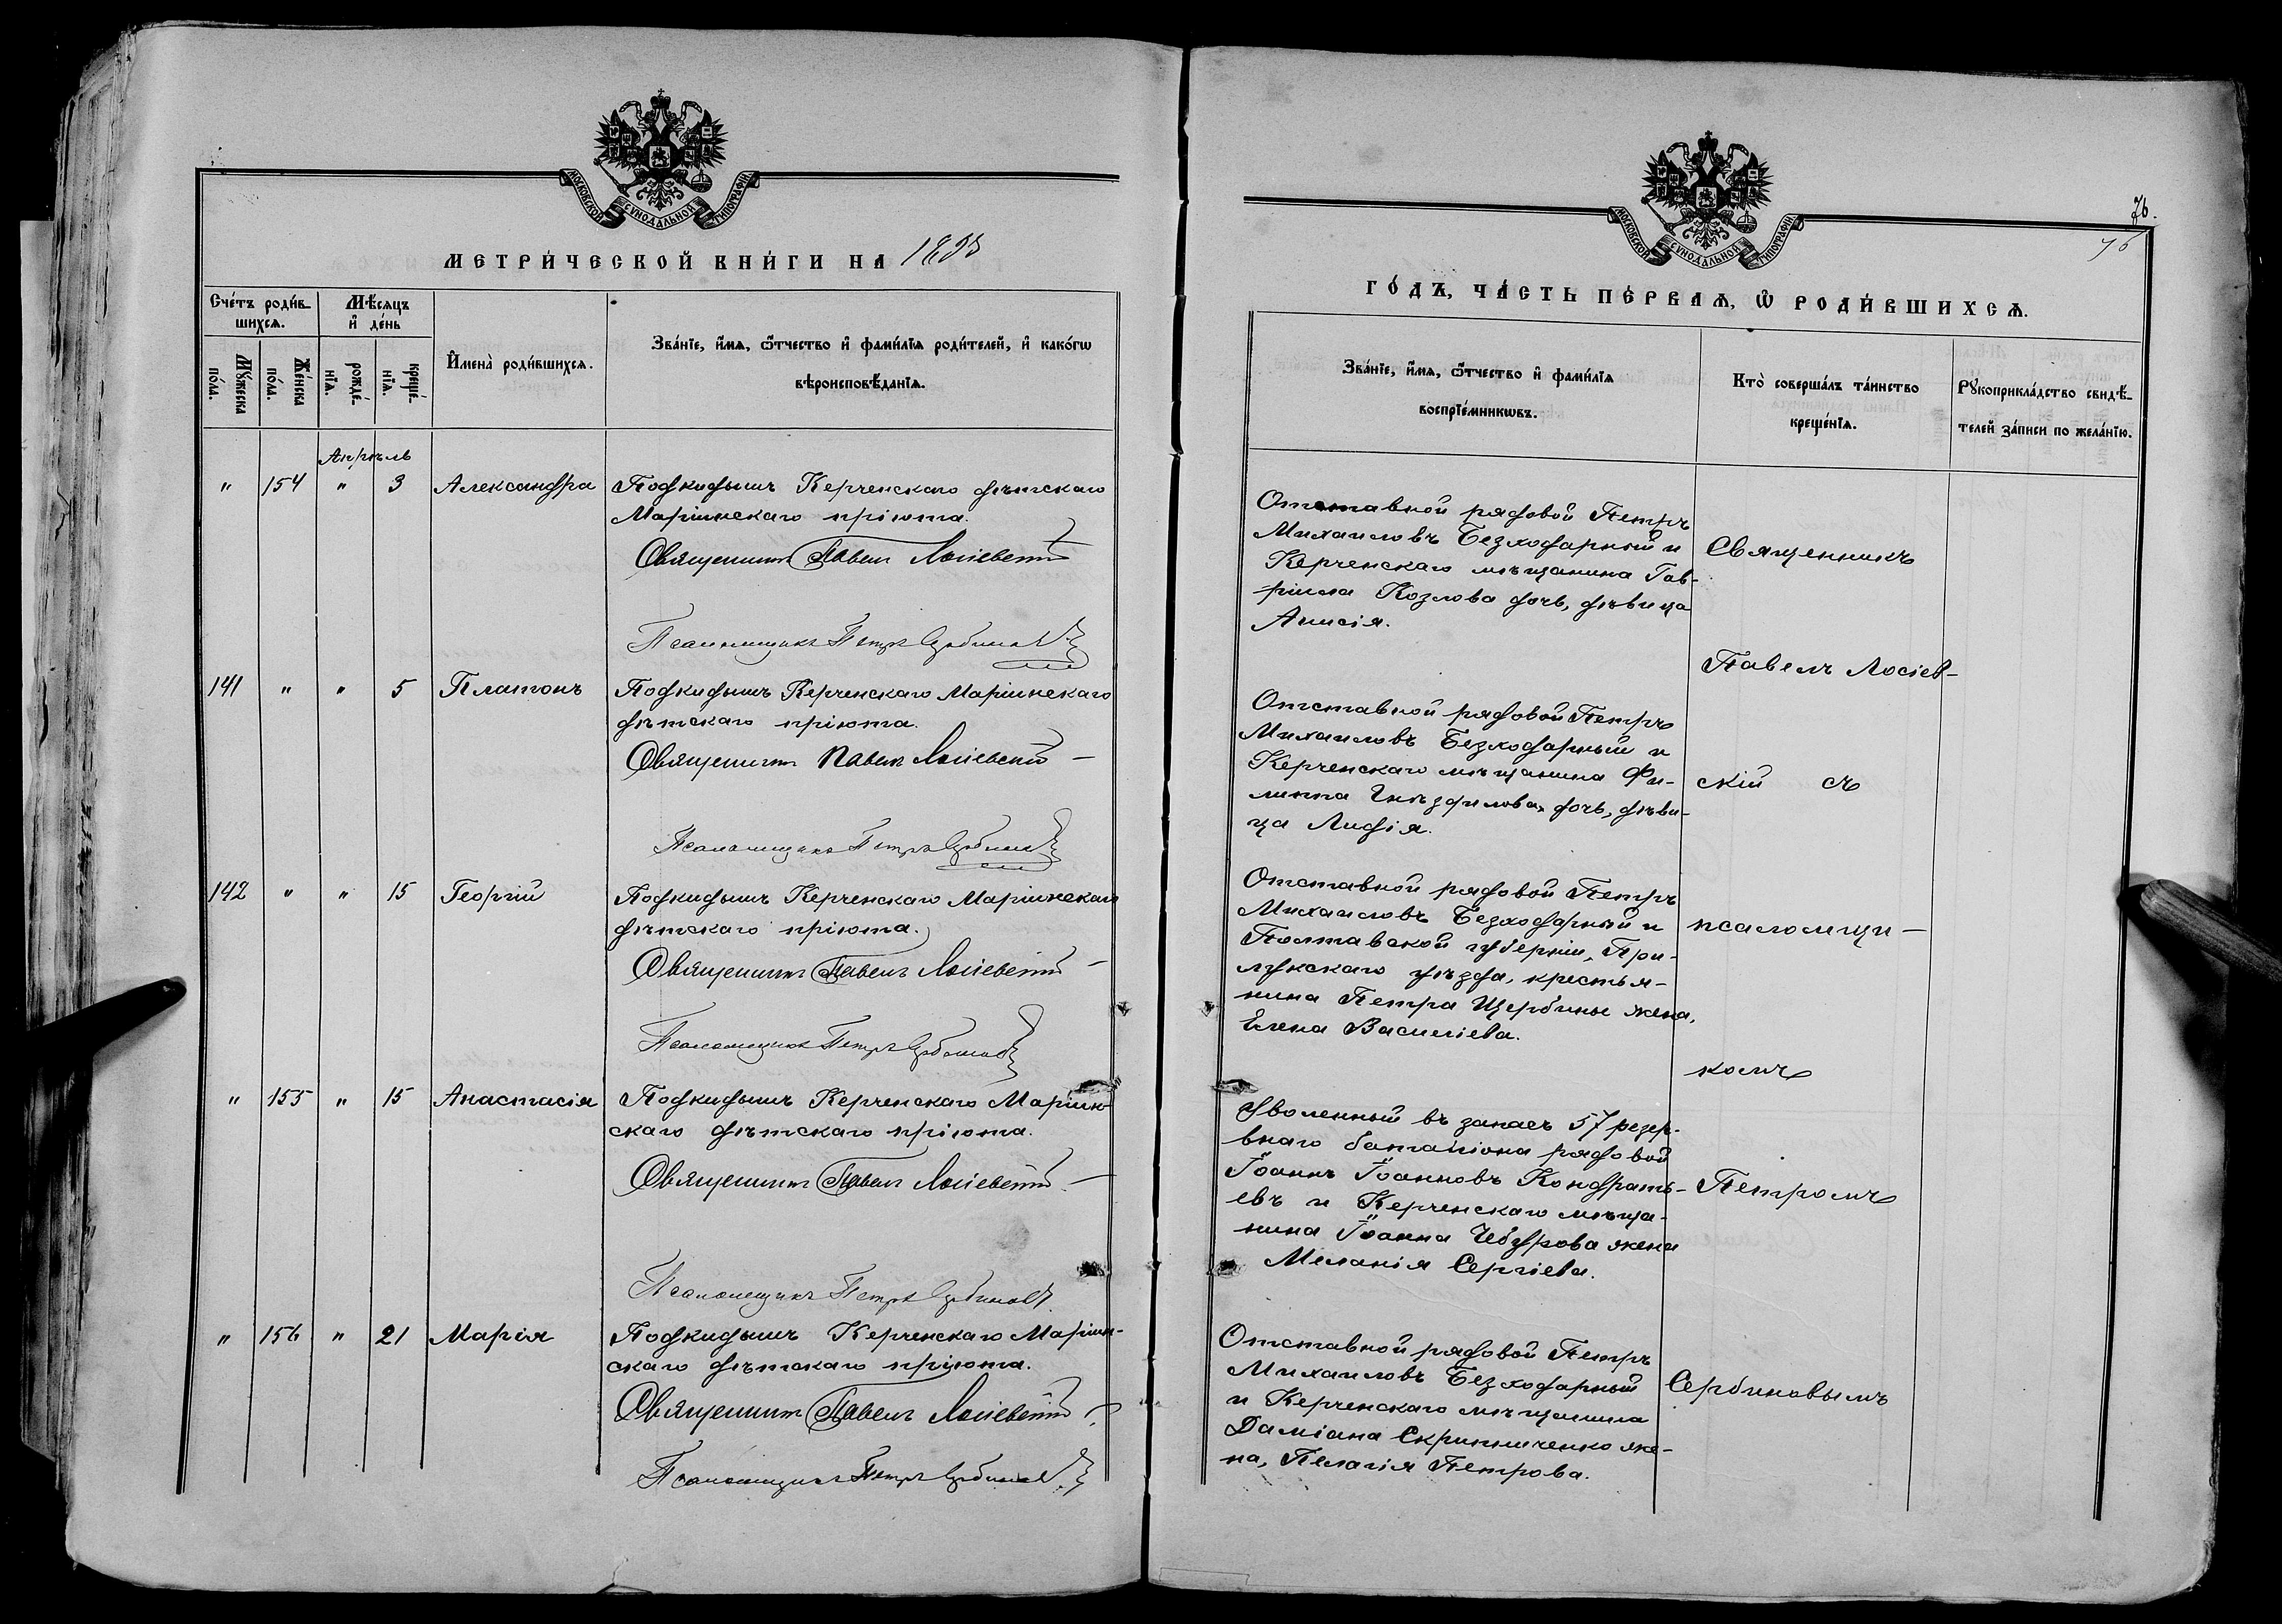 МОСКОВСКОЙ СѴНОДАЛЬНОЙ ТИПОГРАФІИ
МЕТРИ́ЧЕСКОЙ КНИ́ГИ НА
Сче́тъ роди́в-
шихсѧ.
Мѣ́сѧцъ
и҆ де́нь
Мꙋ́жеска
по́ла.
Же́нска
по́ла.
рожде́-
нїѧ.
креще́-
нїѧ.
И҆мена̀ роди́вшихсѧ.
Зва́нїе, и҆́мѧ, ѻ҆́тчество и҆ фами́лїѧ роди́телей, и҆ како́гѡ
вѣроисповѣ́данїѧ.
Апрѣль
" 154 " 3 Александра Подкидышъ Керченскаго дѣтскаго
Маріинскаго пріюта.
Священникъ Павелъ Лосіевскій
Псаломщикъ Петръ Сербиновъ
141 " " 5 Платонъ Подкидышъ Керченскаго Маріинскаго
дѣтскаго пріюта.
Священникъ Павелъ Лосіевскій
Псаломщикъ Петръ Сербиновъ
142 " " 15 Георгій Подкидышъ Керченскаго Маріинскаго
дѣтскаго пріюта.
Священникъ Павелъ Лосіевскій
Псаломщикъ Петръ Сербиновъ
" 155 " 15 Анастасія Подкидышъ Керченскаго Маріин-
скаго дѣтскаго пріюта.
Священникъ Павелъ Лосіевскій
Псаломщикъ Петръ Сербиновъ
" 156 " 21 Марія Подкидышъ Керченскаго Маріин-
скаго дѣтскаго пріюта.
Священникъ Павелъ Лосіевскій
Псаломщикъ Петръ Сербиновъ
МОСКОВСКОЙ СѴНОДАЛЬНОЙ ТИПОГРАФІИ
76.
76
ГО́ДЪ, ЧА́СТЬ ПЕ́РВАѦ, Ѡ҆ РОДИ́ВШИХСѦ.
Зва́нїе, и҆́мѧ, ѻ҆́тчество и҆ фами́лїѧ
воспрїе́мникѡвъ.
Кто̀ соверша́лъ та́инство
креще́нїѧ.
Рꙋкоприкла́дство свидѣ́-
телей за́писи по жела́нїю.
Отставной рядовой Петръ
Михаиловъ Безходарный и
Керченскаго мѣщанина Гав-
ріила Козлова дочь, дѣвица
Анисія.
Отставной рядовой Петръ
Михаиловъ Безходарный и
Керченскаго мѣщанина Фи-
липпа Гнѣздилова, дочь, дѣви-
ца Лидія.
Отставной рядовой Петръ
Михаиловъ Безходарный и
Полтавской губерніи, При-
лукскаго уѣзда, крестья-
нина Петра Щербины жена,
Елена Василіева.
Уволенный въ запасъ 57 резер-
внаго баталіона рядовой
Іоаннъ Іоанновъ Кондрать-
евъ и Керченскаго мѣща-
нина Іоанна Чебурова жена
Меланія Сергіева.
Отставной рядовой Петръ
Михаиловъ Безходарный
и Керченскаго мѣщанина
Даміана Скрипниченко же-
на, Пелагія Петрова.
Священникъ
Павелъ Лосіев-
скій съ
псаломщи-
комъ
Петромъ
Сербиновымъ